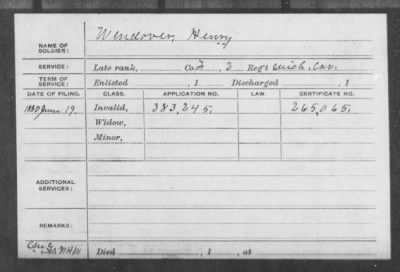 Wendover, Henry
NAME OF SOLDIER:
SERVICE: Late rank, Co. F, 2 Reg't Mich. Cav.
TERM OF SERVICE: Enlisted , 1 Discharged , 1
DATE OF FILING. CLASS. APPLICATION NO. LAW. CERTIFICATE NO.
1880 June 19. Invalid, 383,245. 265,065.
Widow,
Minor,
ADDITIONAL SERVICES:
REMARKS:
Died , 1 , at